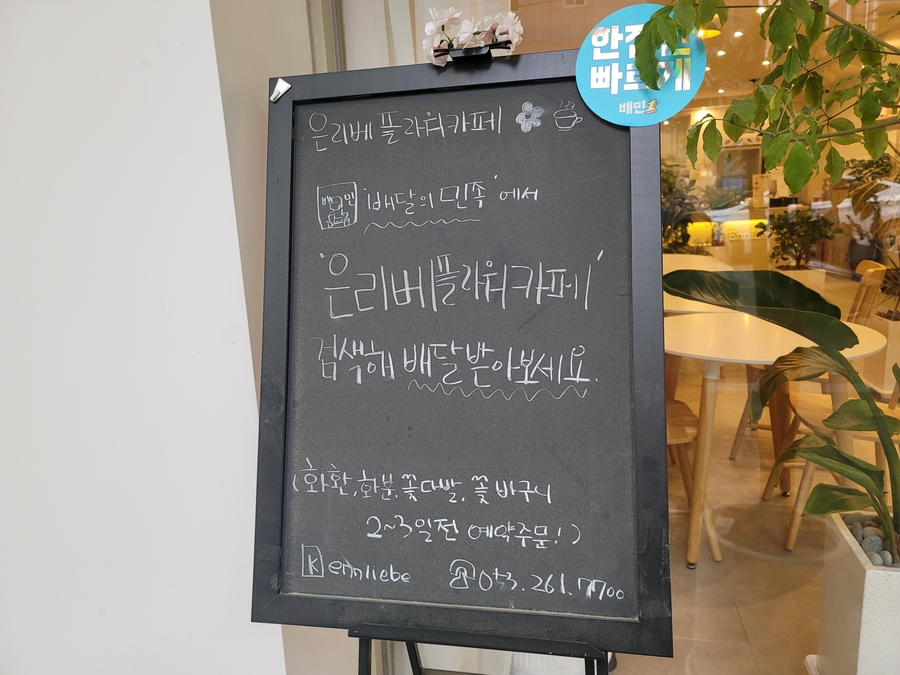 안전한
빠르게
배민1
은리베 플라워카페
배민
'배달의 민족'에서
'은리베플라워카페'
검색해 배달받아보세요.
(화환, 화분, 꽃다발, 꽃바구니
2~3일전 예약주문!)
K ennliebe
053.261.7700